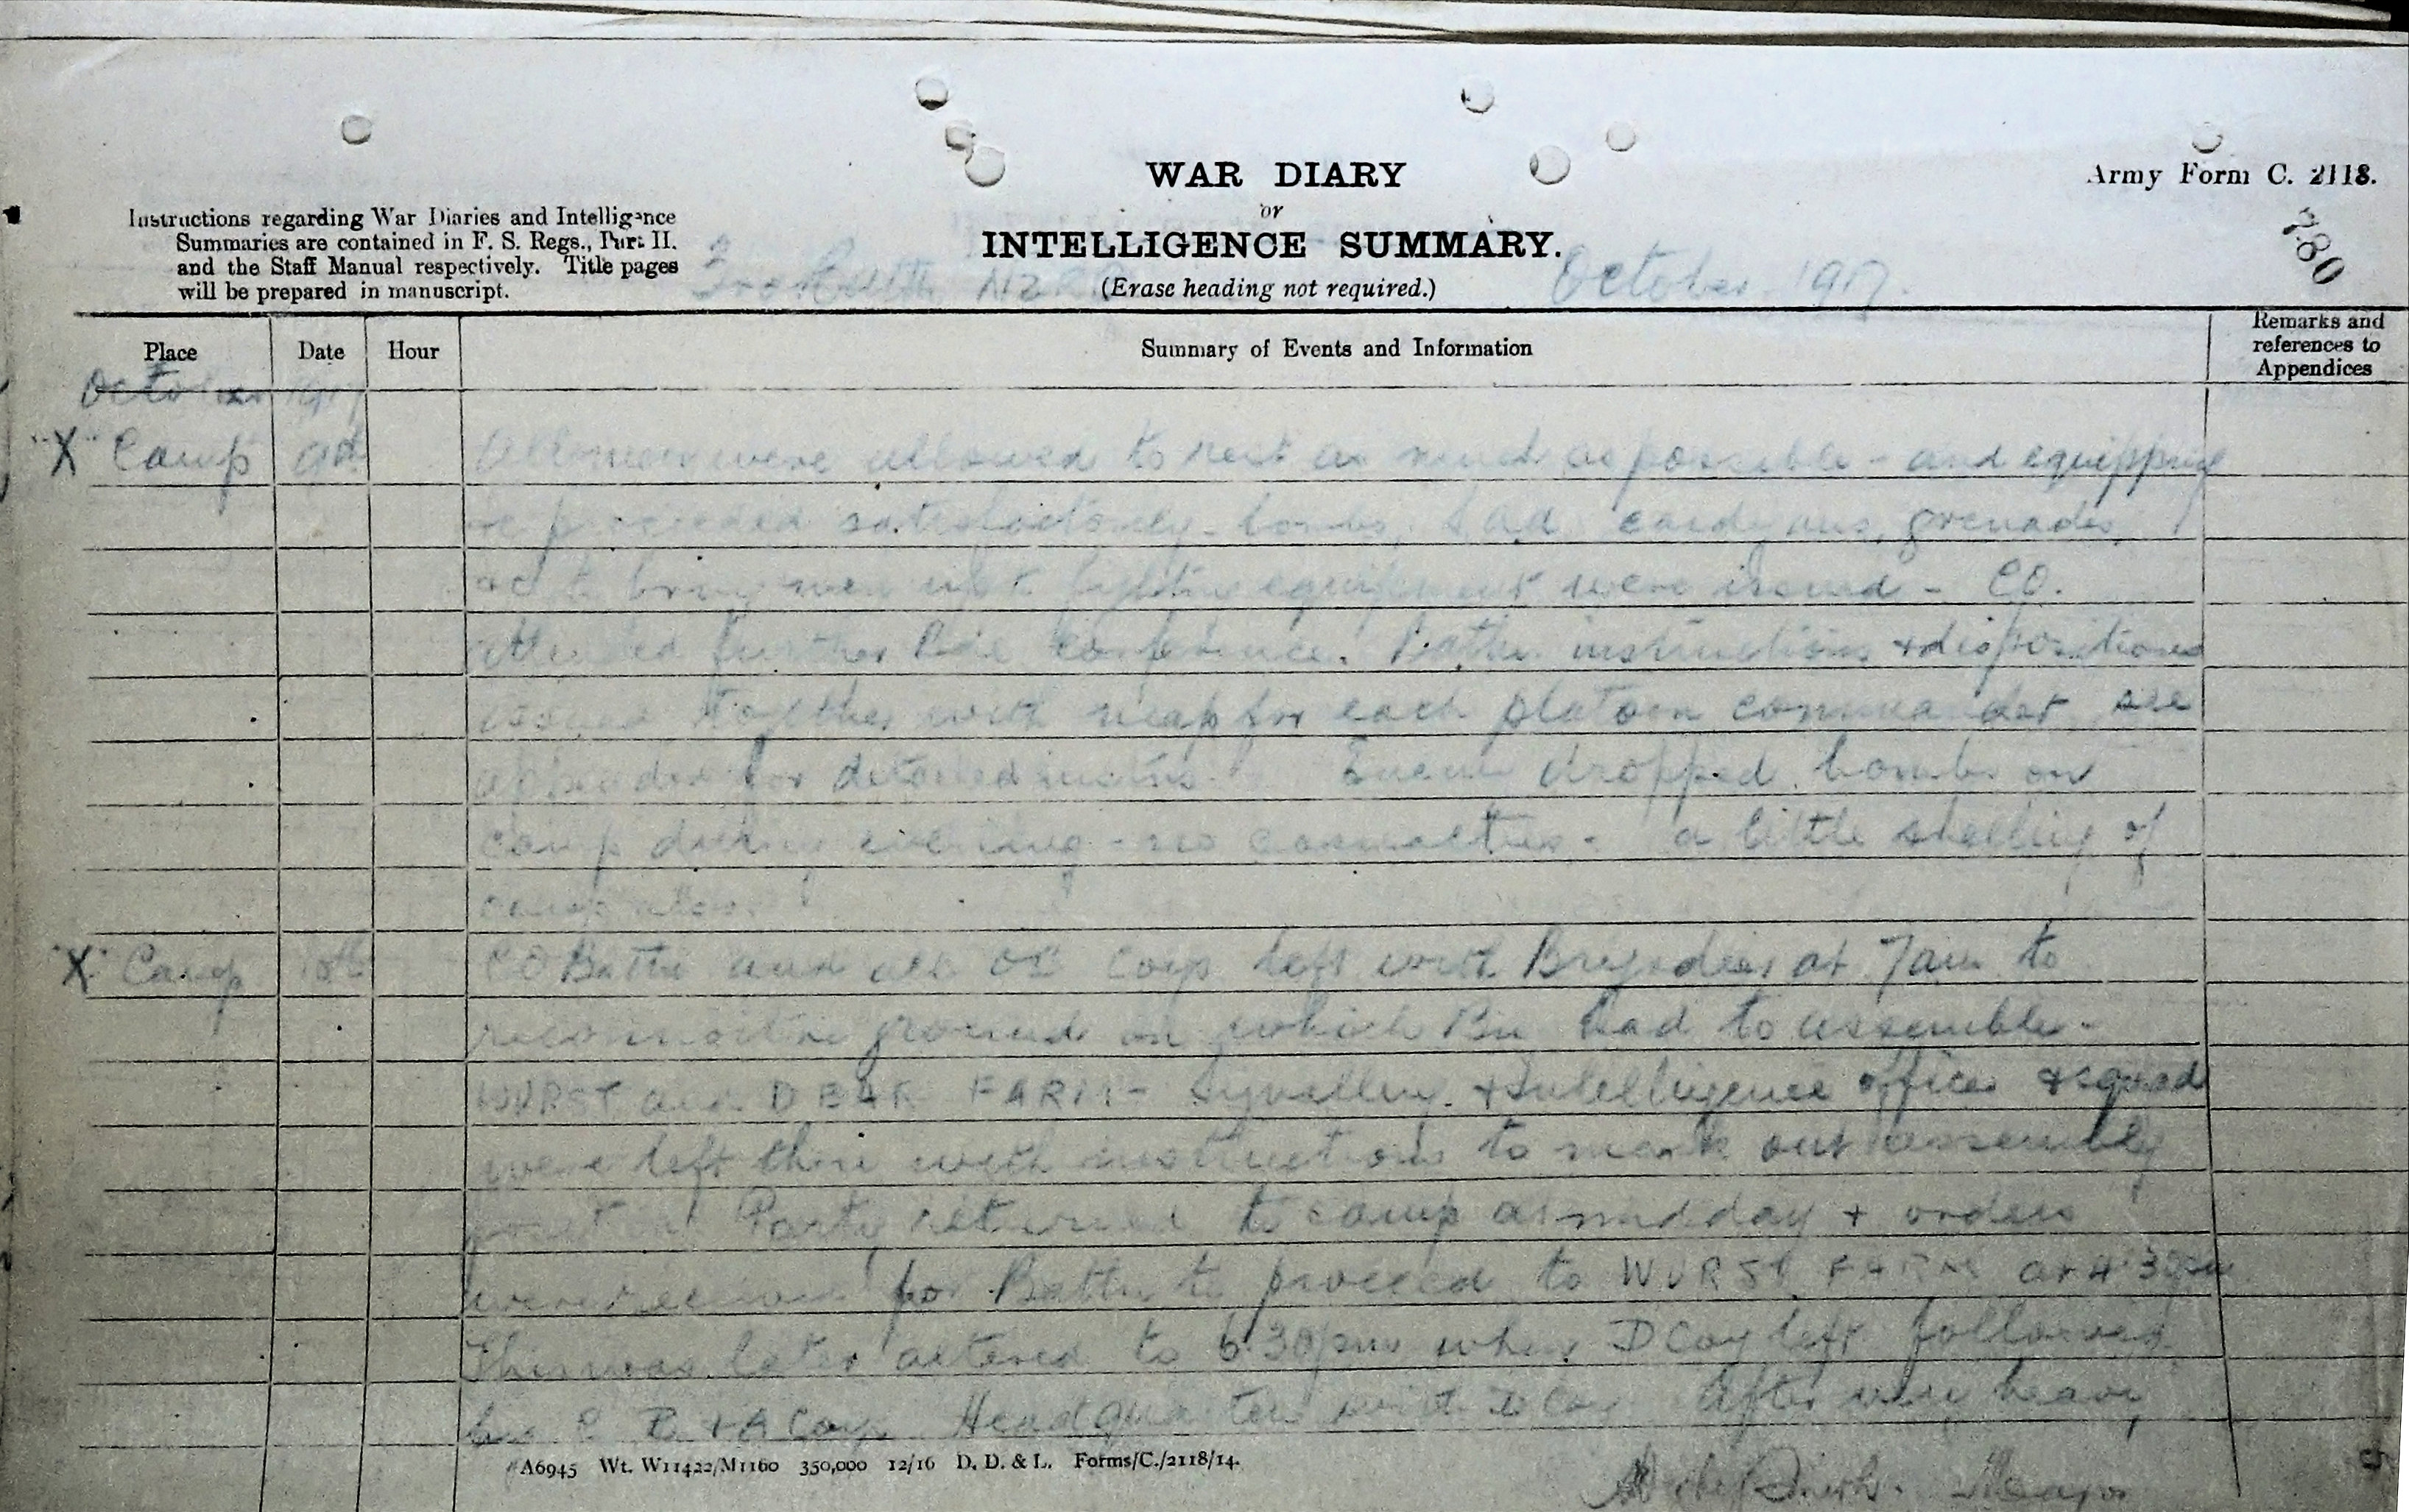 WAR DIARY
or
INTELLIGENCE SUMMARY.
(Erase heading not required.)
Army Form C. 2118.
Instructions regarding War Diaries and Intelligence
Summaries are contained in F. S. Regs., Part II.
and the Staff Manual respectively. Title pages
will be prepared in manuscript.
October 1917.
780
Place Date Hour Summary of Events and Information Remarks and references to Appendices
October 1917
"X" Camp 9th All men were allowed to rest as much as possible - and equipping
proceeded satisfactorily - bombs, SAA grenades,
to bring men up to fighting equipment were issued - CO.
attended further Bde Conference. Battn instructions + dispositions
issued together with map for each platoon commander see
for detailed Enemy dropped bombs on
camp during evening - no casualties - a little shelling of
camp also.
"X" Camp 10th CO Battn and all OC Coys left with Brigadier at 7am to
reconnoitre ground on which Bn had to assemble -
WURST and FARM - Signalling + Intelligence officer + squad
were left there with instructions to mark out assembly
position Party returned to camp at midday + orders
were received for Battn to proceed to WURST FARM at 4.30pm
This was later altered to 6.30pm when D Coy left followed
by C B + A Coy. Headquarters with Coy After very heavy
A6945 Wt. W11422/M1160 350,000 12/16 D. D. & L. Forms/C./2118/14.
Major